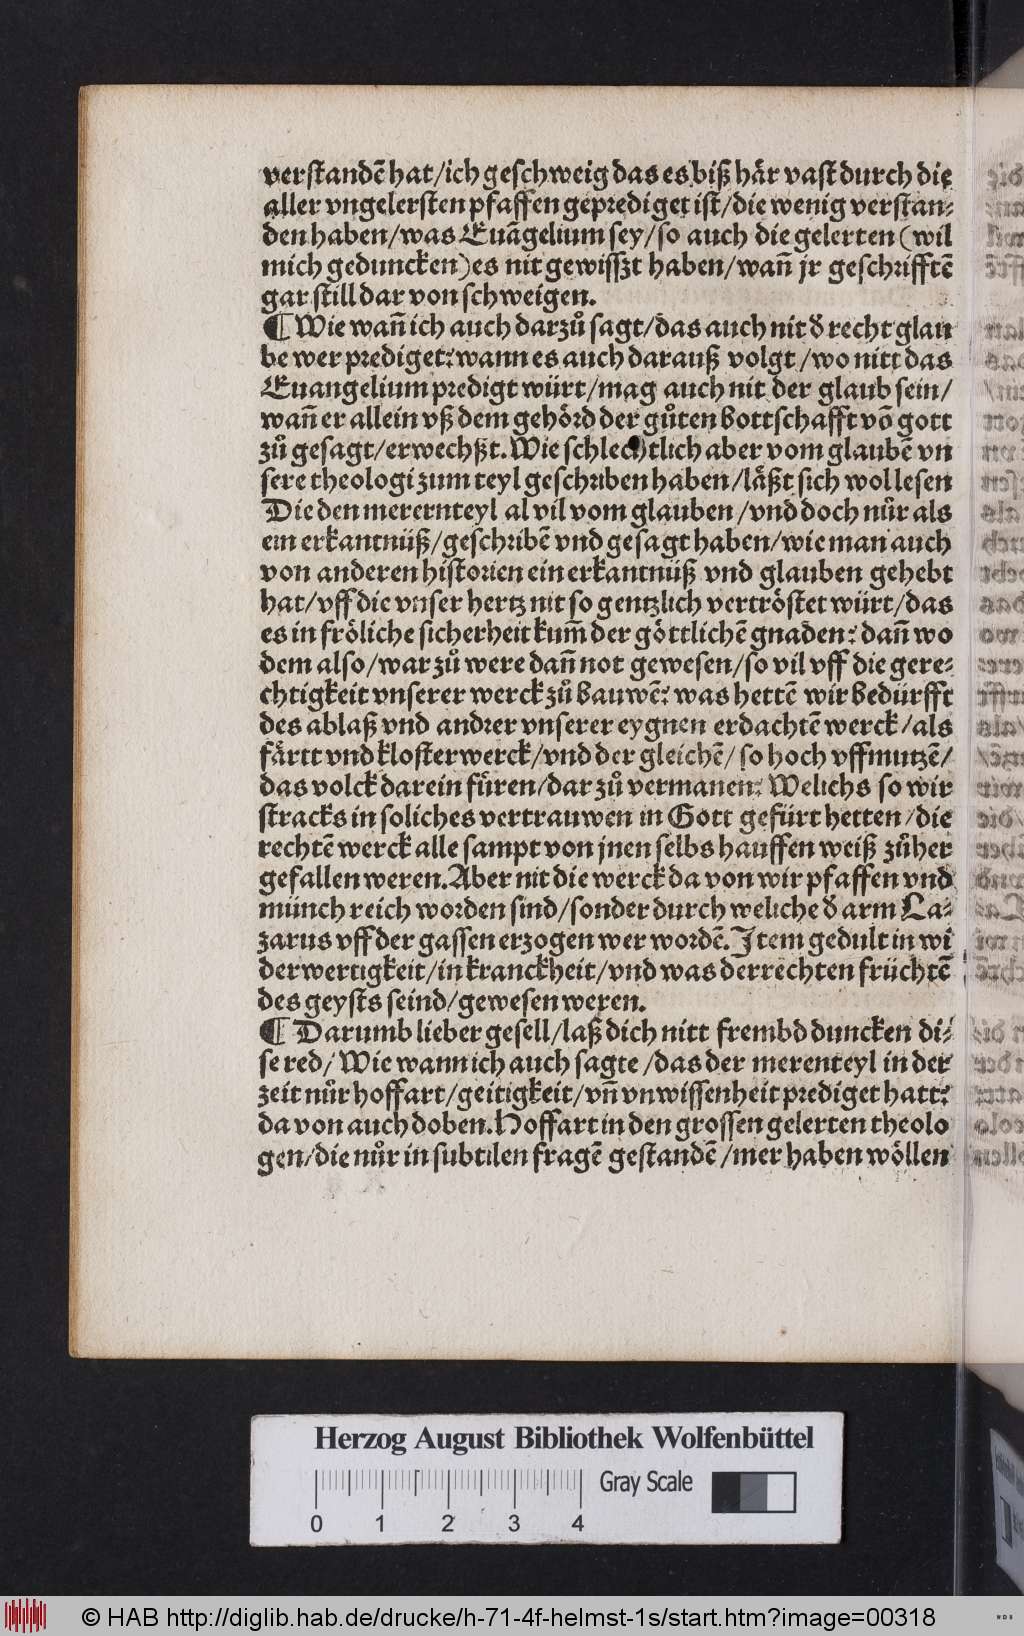 verstandē hat/ich geschweig das es biß här vast durch die
aller vngelersten pfaffen geprediget ist/die wenig verstan⸗
den haben/was Euāgelium sey/so auch die gelerten (wil
mich geduncken) es nit gewisszt haben/wañ jr geschrifftē
gar still dar von schweigen.
¶ Wie wañ ich auch darzů sagt/das auch nit d̕ recht glau
be wer prediget: wann es auch darauß volgt/wo nitt das
Euangelium predigt würt/mag auch nit der glaub sein/
wañ er allein vß dem gehörd der gůten bottschafft võ gott
zů gesagt/erwechßt. Wie schlechtlich aber vom glaubē vn
sere theologi zum teyl geschriben haben/läßt sich wol lesen
Die den merernteyl al vil vom glauben/vnd doch nůr als
ein erkantnüß/geschribē vnd gesagt haben/wie man auch
von anderen historien ein erkantnüß vnd glauben gehebt
hat/vff die vnser hertz nit so gentzlich vertröstet würt/das
es in fröliche sicherheit kum̄ der göttlichē gnaden: dañ wo
dem also/war zů were dañ not gewesen/so vil vff die gere⸗
chtigkeit vnserer werck zů bauwē: was hettē wir bedürfft
des ablaß vnd andrer vnserer eygnen erdachtē werck/als
färtt vnd klosterwerck/vnd der gleichē/so hoch vffmutzē/
das volck darein fůren/dar zů vermanen: Welichs so wir
stracks in soliches vertrauwen in Gott gefürt hetten/die
rechtē werck alle sampt von jnen selbs hauffen weiß zůher
gefallen weren. Aber nit die werck da von wir pfaffen vnd
münch reich worden sind/sonder durch weliche d̕ arm La⸗
zarus vff der gassen erzogen wer wordē. Item gedult in wi
derwertigkeit/in kranckheit/vnd was der rechten früchtē
des geysts seind/gewesen weren.
¶ Darumb lieber gesell/laß dich nitt frembd duncken di⸗
se red/Wie wann ich auch sagte/das der merenteyl in der
zeit nůr hoffart/geitigkeit/vñ vnwissenheit prediget hatt:
da von auch doben. Hoffart in den grossen gelerten theolo
gen/die nůr in subtilen fragē gestandē/mer haben wöllen
Herzog August Bibliothek Wolfenbüttel
Gray Scale
0 1 2 3 4
© HAB http://diglib.hab.de/drucke/h-71-4f-helmst-1s/start.htm?image=00318